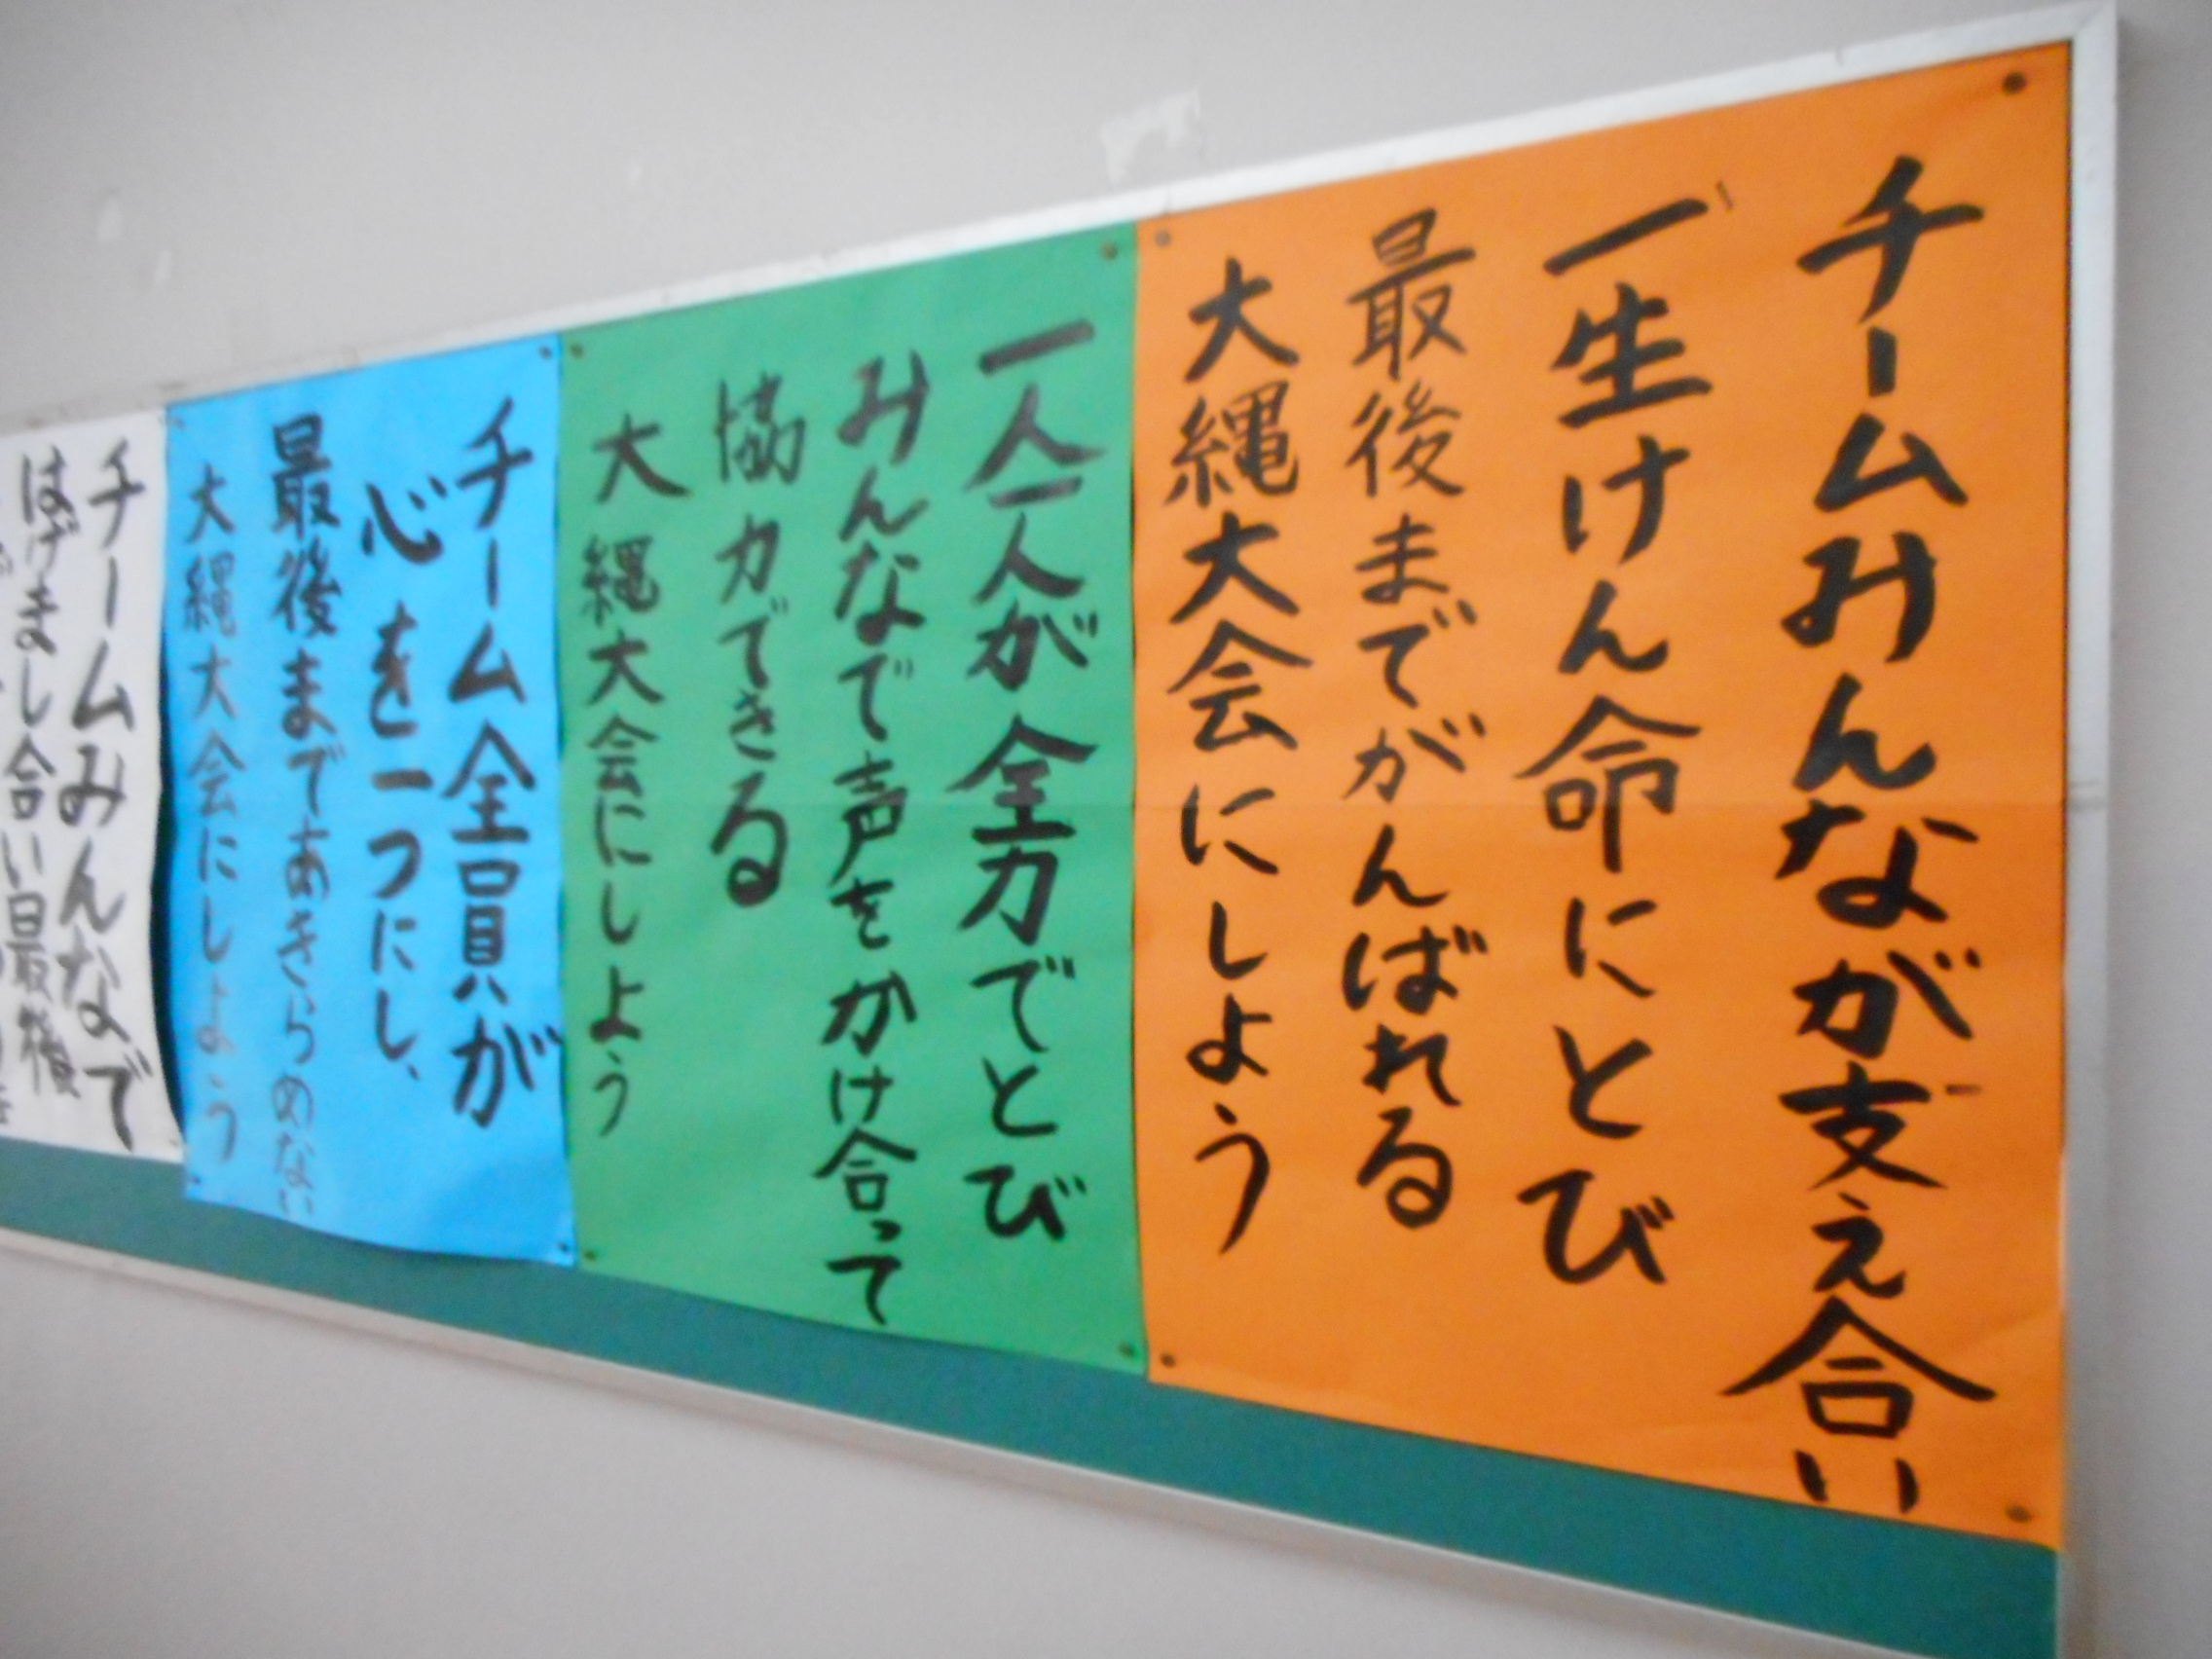 チームみんなが支え合い
一生けん命にとび
最後までがんばれる
大縄大会にしよう
一人一人が全力でとび
みんなで声をかけ合って
協力できる
大縄大会にしよう
チーム全員が
心を一つにし、
最後まであきらめない
大縄大会にしよう
チームみんなで
はげまし合い最後